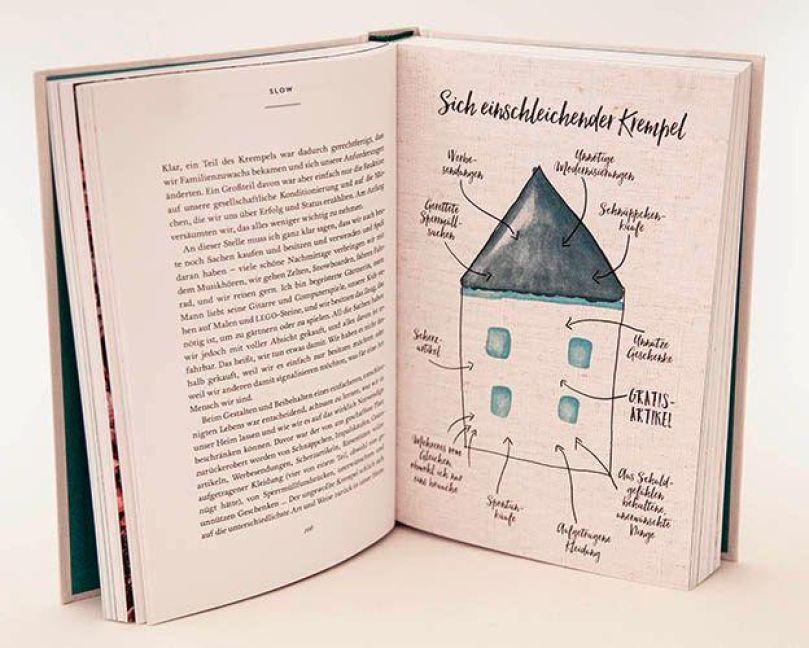 SLOW
Klar, ein Teil des Krempels war dadurch gerechtfertigt, dass
wir Familienzuwachs bekamen und sich unsere Anforderungen
änderten. Ein Großteil davon war aber einfach nur die Reaktion
auf unsere gesellschaftliche Konditionierung und auf die Mär-
chen, die wir uns über Erfolg und Status erzählten. Am Anfang
versäumten wir, das alles weniger wichtig zu nehmen.
An dieser Stelle muss ich ganz klar sagen, dass wir auch heu-
te noch Sachen kaufen und besitzen und verwenden und Spaß
daran haben – viele schöne Nachmittage verbringen wir mit
dem Musikhören, wir gehen Zelten, Snowboarden, fahren Fahr-
rad, und wir reisen gern. Ich bin begeisterte Gärtnerin, mein
Mann liebt seine Gitarre und Computerspiele, unsere Kids ste-
hen auf Malen und LEGO-Steine, und wir besitzen das Zeug, das
nötig ist, um zu gärtnern oder zu spielen. All die Sachen haben
wir jedoch mit voller Absicht gekauft, und alles davon ist
fahrbar. Das heißt, wir tun etwas damit. Wir haben es nicht des-
halb gekauft, weil wir es einfach nur besitzen möchten oder
weil wir anderen damit signalisieren möchten, was für eine Art
Mensch wir sind.
Beim Gestalten und Beibehalten eines einfacheren,
nigten Lebens war entscheidend, achtsam zu lernen, was wir in
unser Heim lassen und wie wir es auf das wirklich Notwendige
beschränken können. Davor war der von uns geschaffene Platz
zurückerobert worden von Schnäppchen, Impulskäufen, Gratis-
artikeln, Werbesendungen, Scherzartikeln,
aufgetragener Kleidung (vier von einem Teil, obwohl eins ge-
nügt hätte), von Sperrmüllfundstücken, unerwünschten und
unnützen Geschenken ... Der ungewollte Krempel schlich sich
auf die unterschiedlichste Art und Weise zurück in unser Heim.
106
Sich einschleichender Krempel
Werbe-
sendungen
Unnötige
Modernisierungen
Gerettete
Sperrmüll-
sachen
Schnäppchen-
käufe
Scherz-
artikel
Unnütze
Geschenke
GRATIS-
ARTIKEL
Mehreres vom
Gleichen,
obwohl ich nur
eins brauche
Spontan-
käufe
Aufgetragene
Kleidung
Aus Schuld-
gefühlen
behaltene,
unerwünschte
Dinge